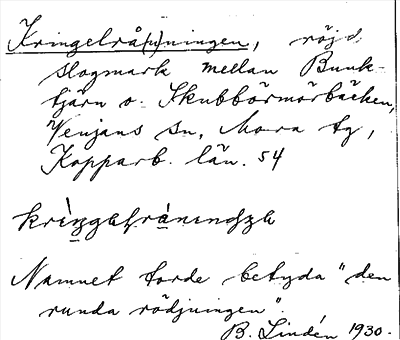 Kringelrå(n)ningen, röjd
slogmark mellan Bunk-
tjärn o. Skubbörmörbäcken,
Venjans sn, Mora tg,
Kopparb. län. 54
Namnet torde betyda "den
runda rödjningen".
B. Lindén 1930.